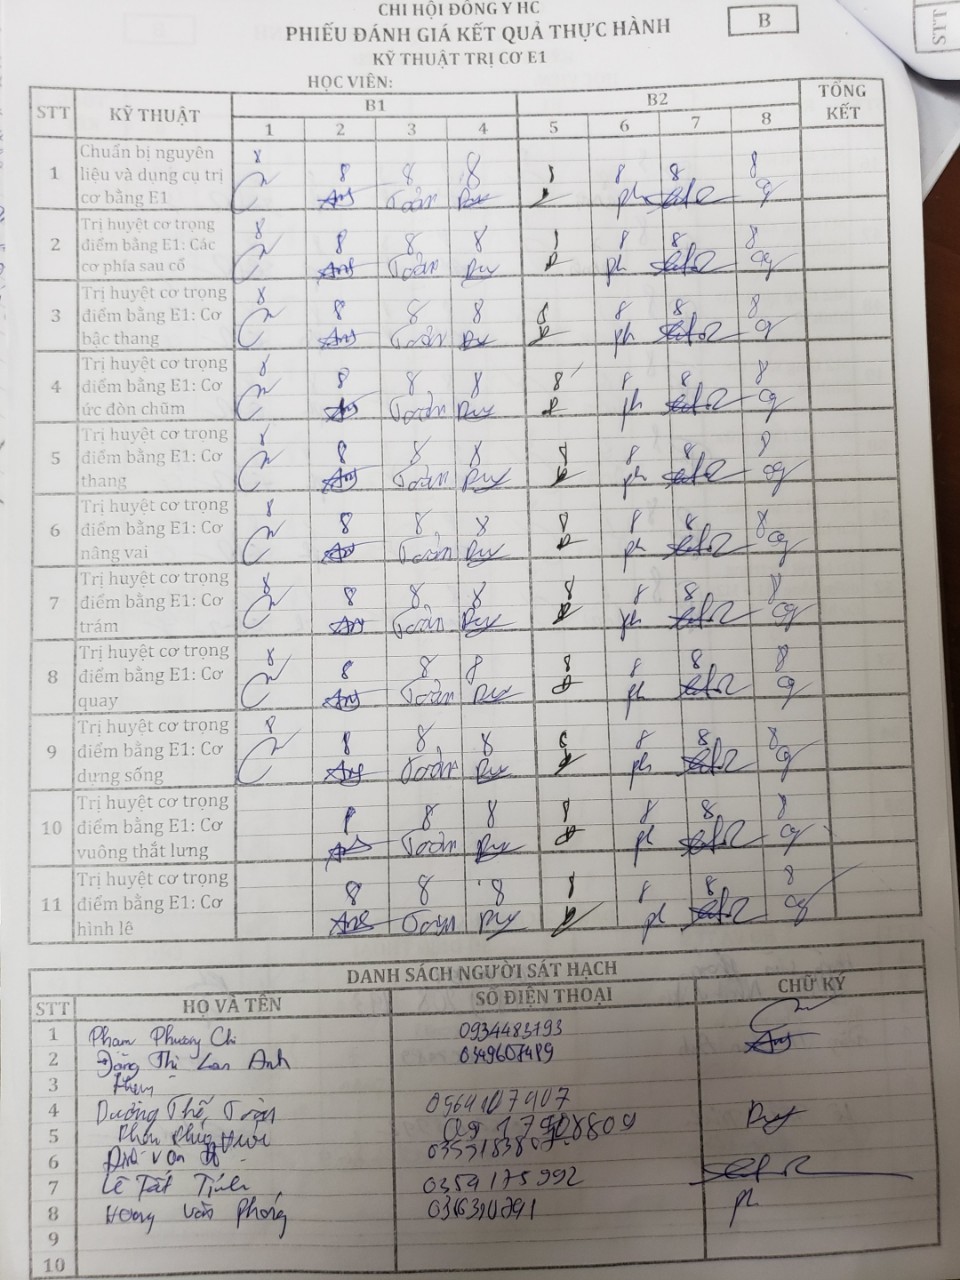 CHI HỘI ĐÔNG Y HC
PHIẾU ĐÁNH GIÁ KẾT QUẢ THỰC HÀNH
B
J.T.S
KỸ THUẬT TRỊ CƠ E1
HỌC VIÊN:
STT KỸ THUẬT B1 B2 TỔNG KẾT
1 2 3 4 5 6 7 8
1 Chuẩn bị nguyên
liệu và dụng cụ trị
cơ bằng E1
8 8 8 8 8 8 8 8
Anh Toản Duy ph
2 Trị huyệt cơ trọng
điểm bằng E1: Các
cơ phía sau cổ
8 8 8 8 8 8 8
Anh Toản Duy ph
3 Trị huyệt cơ trọng
điểm bằng E1: Cơ
bậc thang
8 8 8 8 8 8 8 8
Anh Toản Duy ph
4 Trị huyệt cơ trọng
điểm bằng E1: Cơ
ức đòn chũm
8 8 8 8 8 8 8 8
Anh Toản Duy ph
5 Trị huyệt cơ trọng
điểm bằng E1: Cơ
thang
8 8 8 8 8 8 8 8
Anh Toản Duy ph
6 Trị huyệt cơ trọng
điểm bằng E1: Cơ
nâng vai
8 8 8 8 8 8 8 8
Anh Toản Duy ph
7 Trị huyệt cơ trọng
điểm bằng E1: Cơ
trám
8 8 8 8 8 8 8 8
Anh Toản Duy ph
8 Trị huyệt cơ trọng
điểm bằng E1: Cơ
quay
8 8 8 8 8 8 8 8
Anh Toản Duy ph
9 Trị huyệt cơ trọng
điểm bằng E1: Cơ
dựng sống
8 8 8 8 8 8 8 8
Anh Toản Duy ph
10 Trị huyệt cơ trọng
điểm bằng E1: Cơ
vuông thắt lưng
8 8 8 8 8 8 8
Anh Toản Duy ph
11 Trị huyệt cơ trọng
điểm bằng E1: Cơ
hình lê
8 8 8 8 8 8 8
Anh Toản Duy ph
DANH SÁCH NGƯỜI SÁT HẠCH
STT HỌ VÀ TÊN SỐ ĐIỆN THOẠI CHỮ KÝ
1 Phạm Phương Chi 0934483793
2 Đặng Thị Lan Anh 0349607489 Anh
3
4 Dương Thế Toản 0964107407
5 Duy
6
7 Lê Tất Tính 0354175992
8 Hoàng Văn Phóng ph
9
10